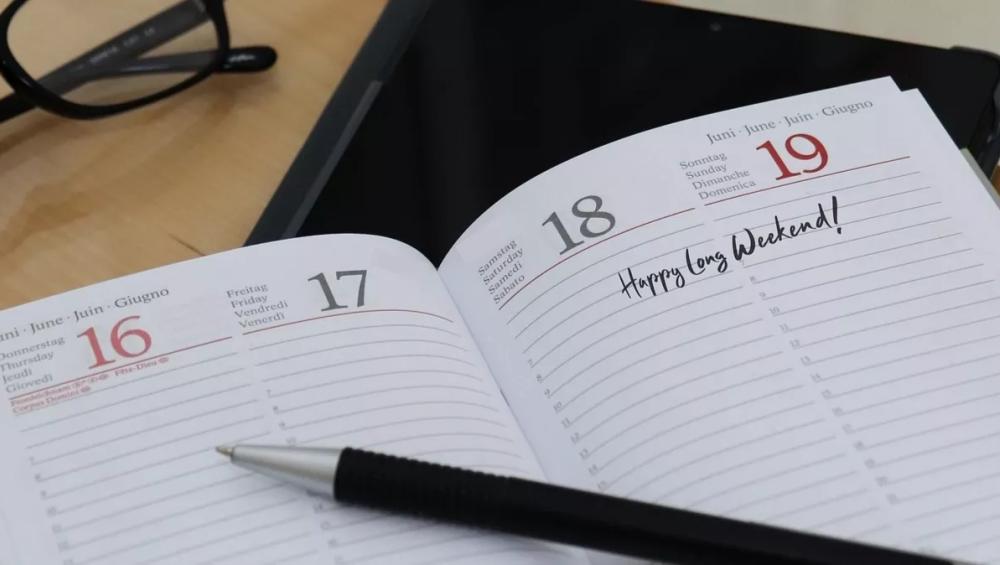 Juni · June · Juin · Giugno
Donnerstag
Thursday
Jeudi
Giovedì
16
Fronleichnam
Fête-Dieu
Corpus Domini
Freitag
Friday
Vendredi
Venerdì
17
Samstag
Saturday
Samedi
Sabato
18
Juni · June · Juin · Giugno
Sonntag
Sunday
Dimanche
Domenica
19
Happy Long Weekend!